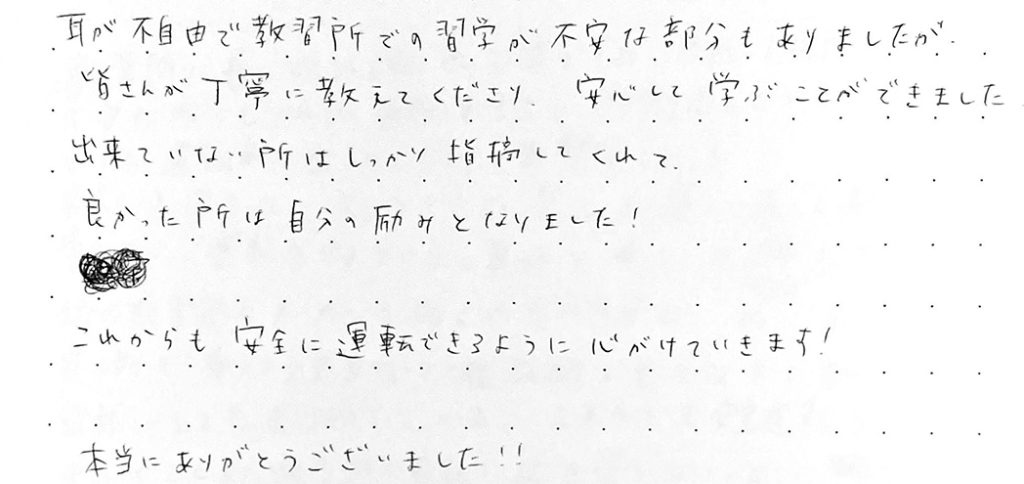 耳が不自由で教習所での習学が不安な部分もありましたが、
皆さんが丁寧に教えてくださり、安心して学ぶことができました。
出来ていない所はしっかり指摘してくれて、
良かった所は自分の励みとなりました！
これからも安全に運転できるように心がけていきます！
本当にありがとうございました！！